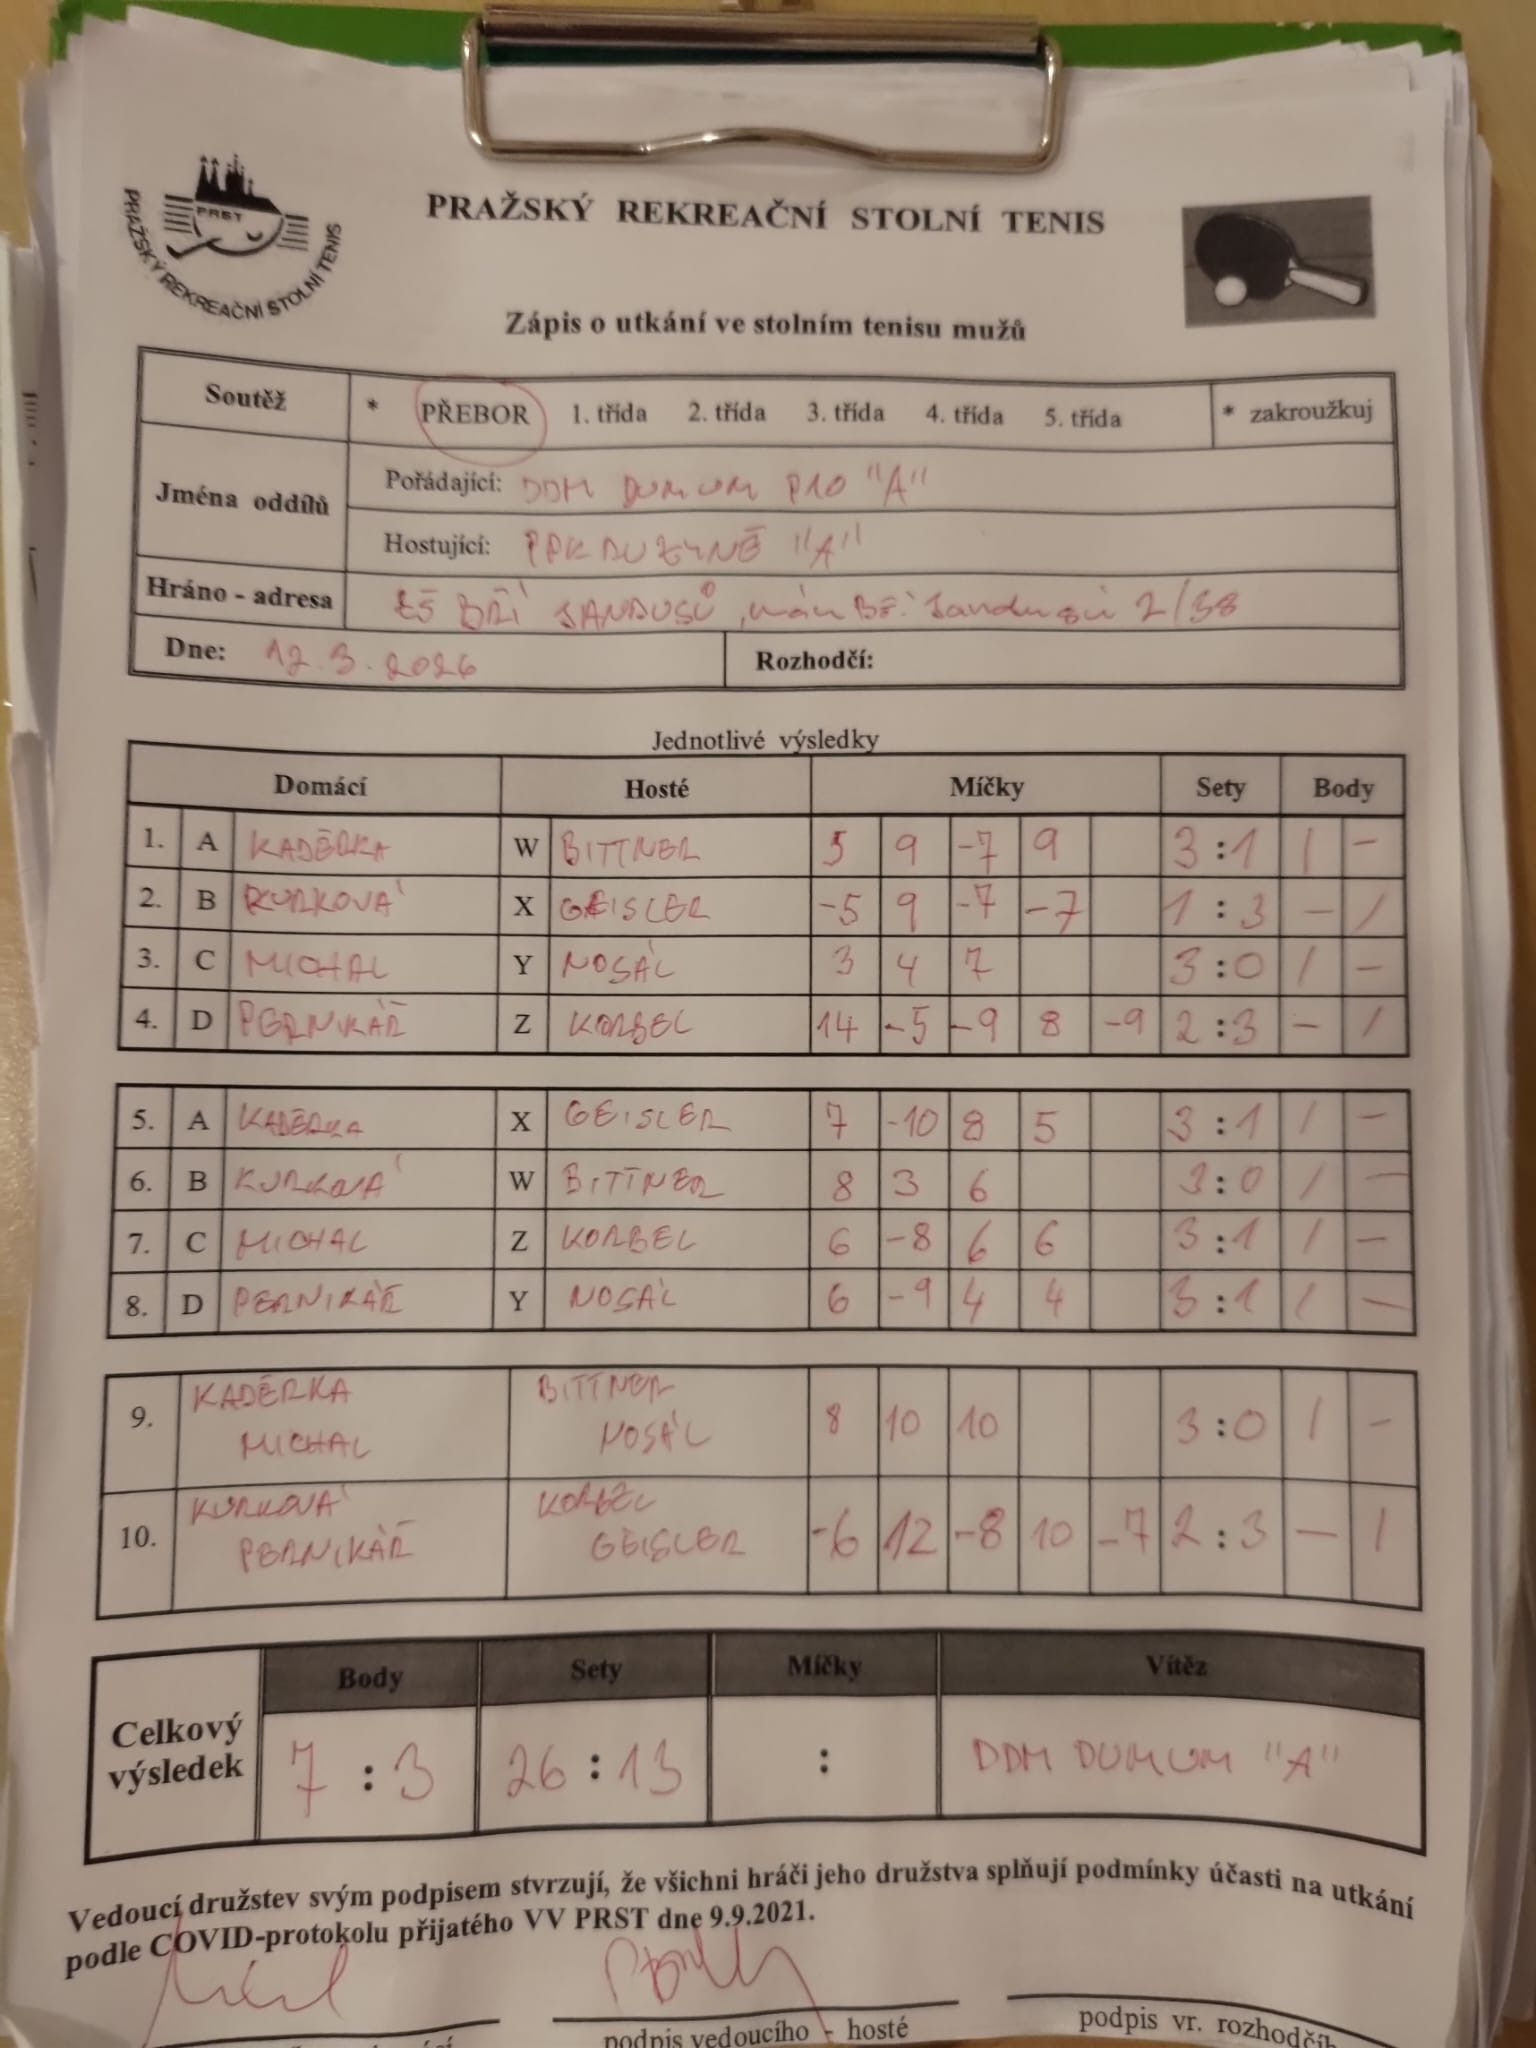 PRST
PRAŽSKÝ REKREAČNÍ STOLNÍ TENIS
PRAŽSKÝ REKREAČNÍ STOLNÍ TENIS
Zápis o utkání ve stolním tenisu mužů
Soutěž * PŘEBOR 1. třída 2. třída 3. třída 4. třída 5. třída * zakroužkuj
Jména oddílů
Pořádající: DDM DUMUM P10 "A"
Hostující: "A"
Hráno - adresa ZŠ BŘÍ JANDUSŮ, Bří Jandusů 2/38
Dne: 12.3.2026 Rozhodčí:
Jednotlivé výsledky
Domácí Hosté Míčky Sety Body
1. A KADĚRKA W BITTNER 5 9 -7 9 3:1 / -
2. B KURKOVÁ X GEISLER -5 9 -7 -7 1:3 - /
3. C MICHAL Y NOSÁL 3 4 7 3:0 / -
4. D PERNIKÁŘ Z KORBEL 14 -5 -9 8 -9 2:3 - /
5. A KADĚRKA X GEISLER 7 -10 8 5 3:1 / -
6. B KURKOVÁ W BITTNER 8 3 6 3:0 / -
7. C MICHAL Z KORBEL 6 -8 6 6 3:1 / -
8. D PERNIKÁŘ Y NOSÁL 6 -9 4 4 3:1 / -
9. KADĚRKA BITTNER 8 10 10 3:0 / -
MICHAL NOSÁL
10. KURKOVÁ KORBEL -6 12 -8 10 -7 2:3 - /
PERNIKÁŘ GEISLER
Body Sety Míčky Vítěz
Celkový výsledek 7:3 26:13 : DDM DUMUM "A"
Vedoucí družstev svým podpisem stvrzují, že všichni hráči jeho družstva splňují podmínky účasti na utkání
podle COVID-protokolu přijatého VV PRST dne 9.9.2021.
podpis vedoucího - hosté podpis vr. rozhodčíh